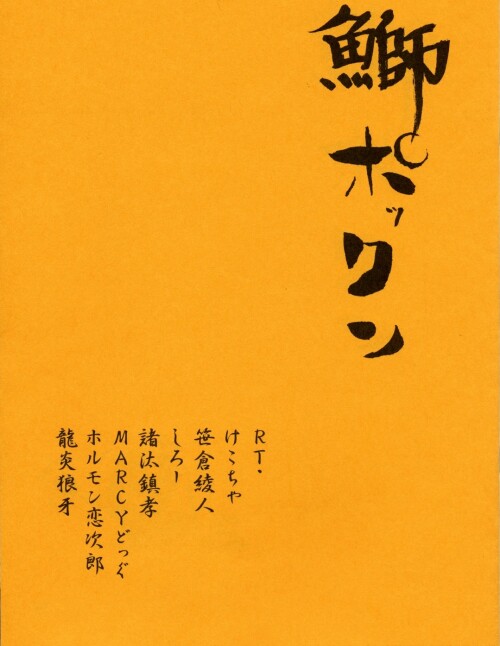 鰤ポックン
RT・
けこちゃ
笹倉綾人
しろー
諸汰鎮孝
MARCYどっぐ
ホルモン恋次郎
龍炎狼牙